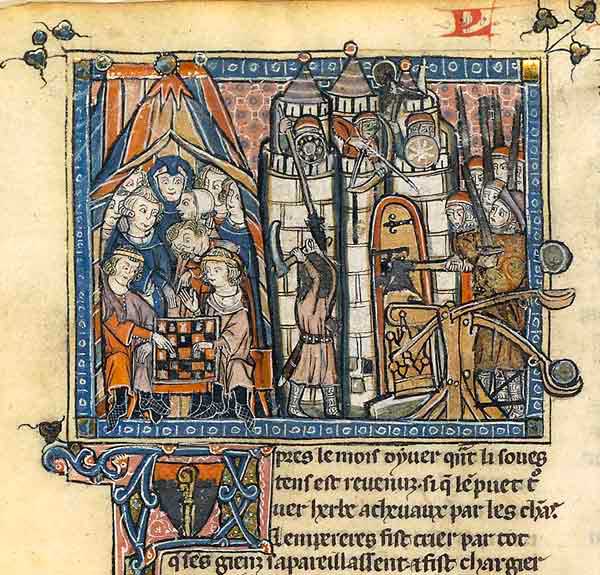 Apres le mois dyver qñt li soues
tens est revenuz. si q̃ lẽ puet t̾
uer herbe acheuaux par les chãs
Lempereres fist crier par tot
q̃ ses gienz sapareillassent ⁊ fist chargier